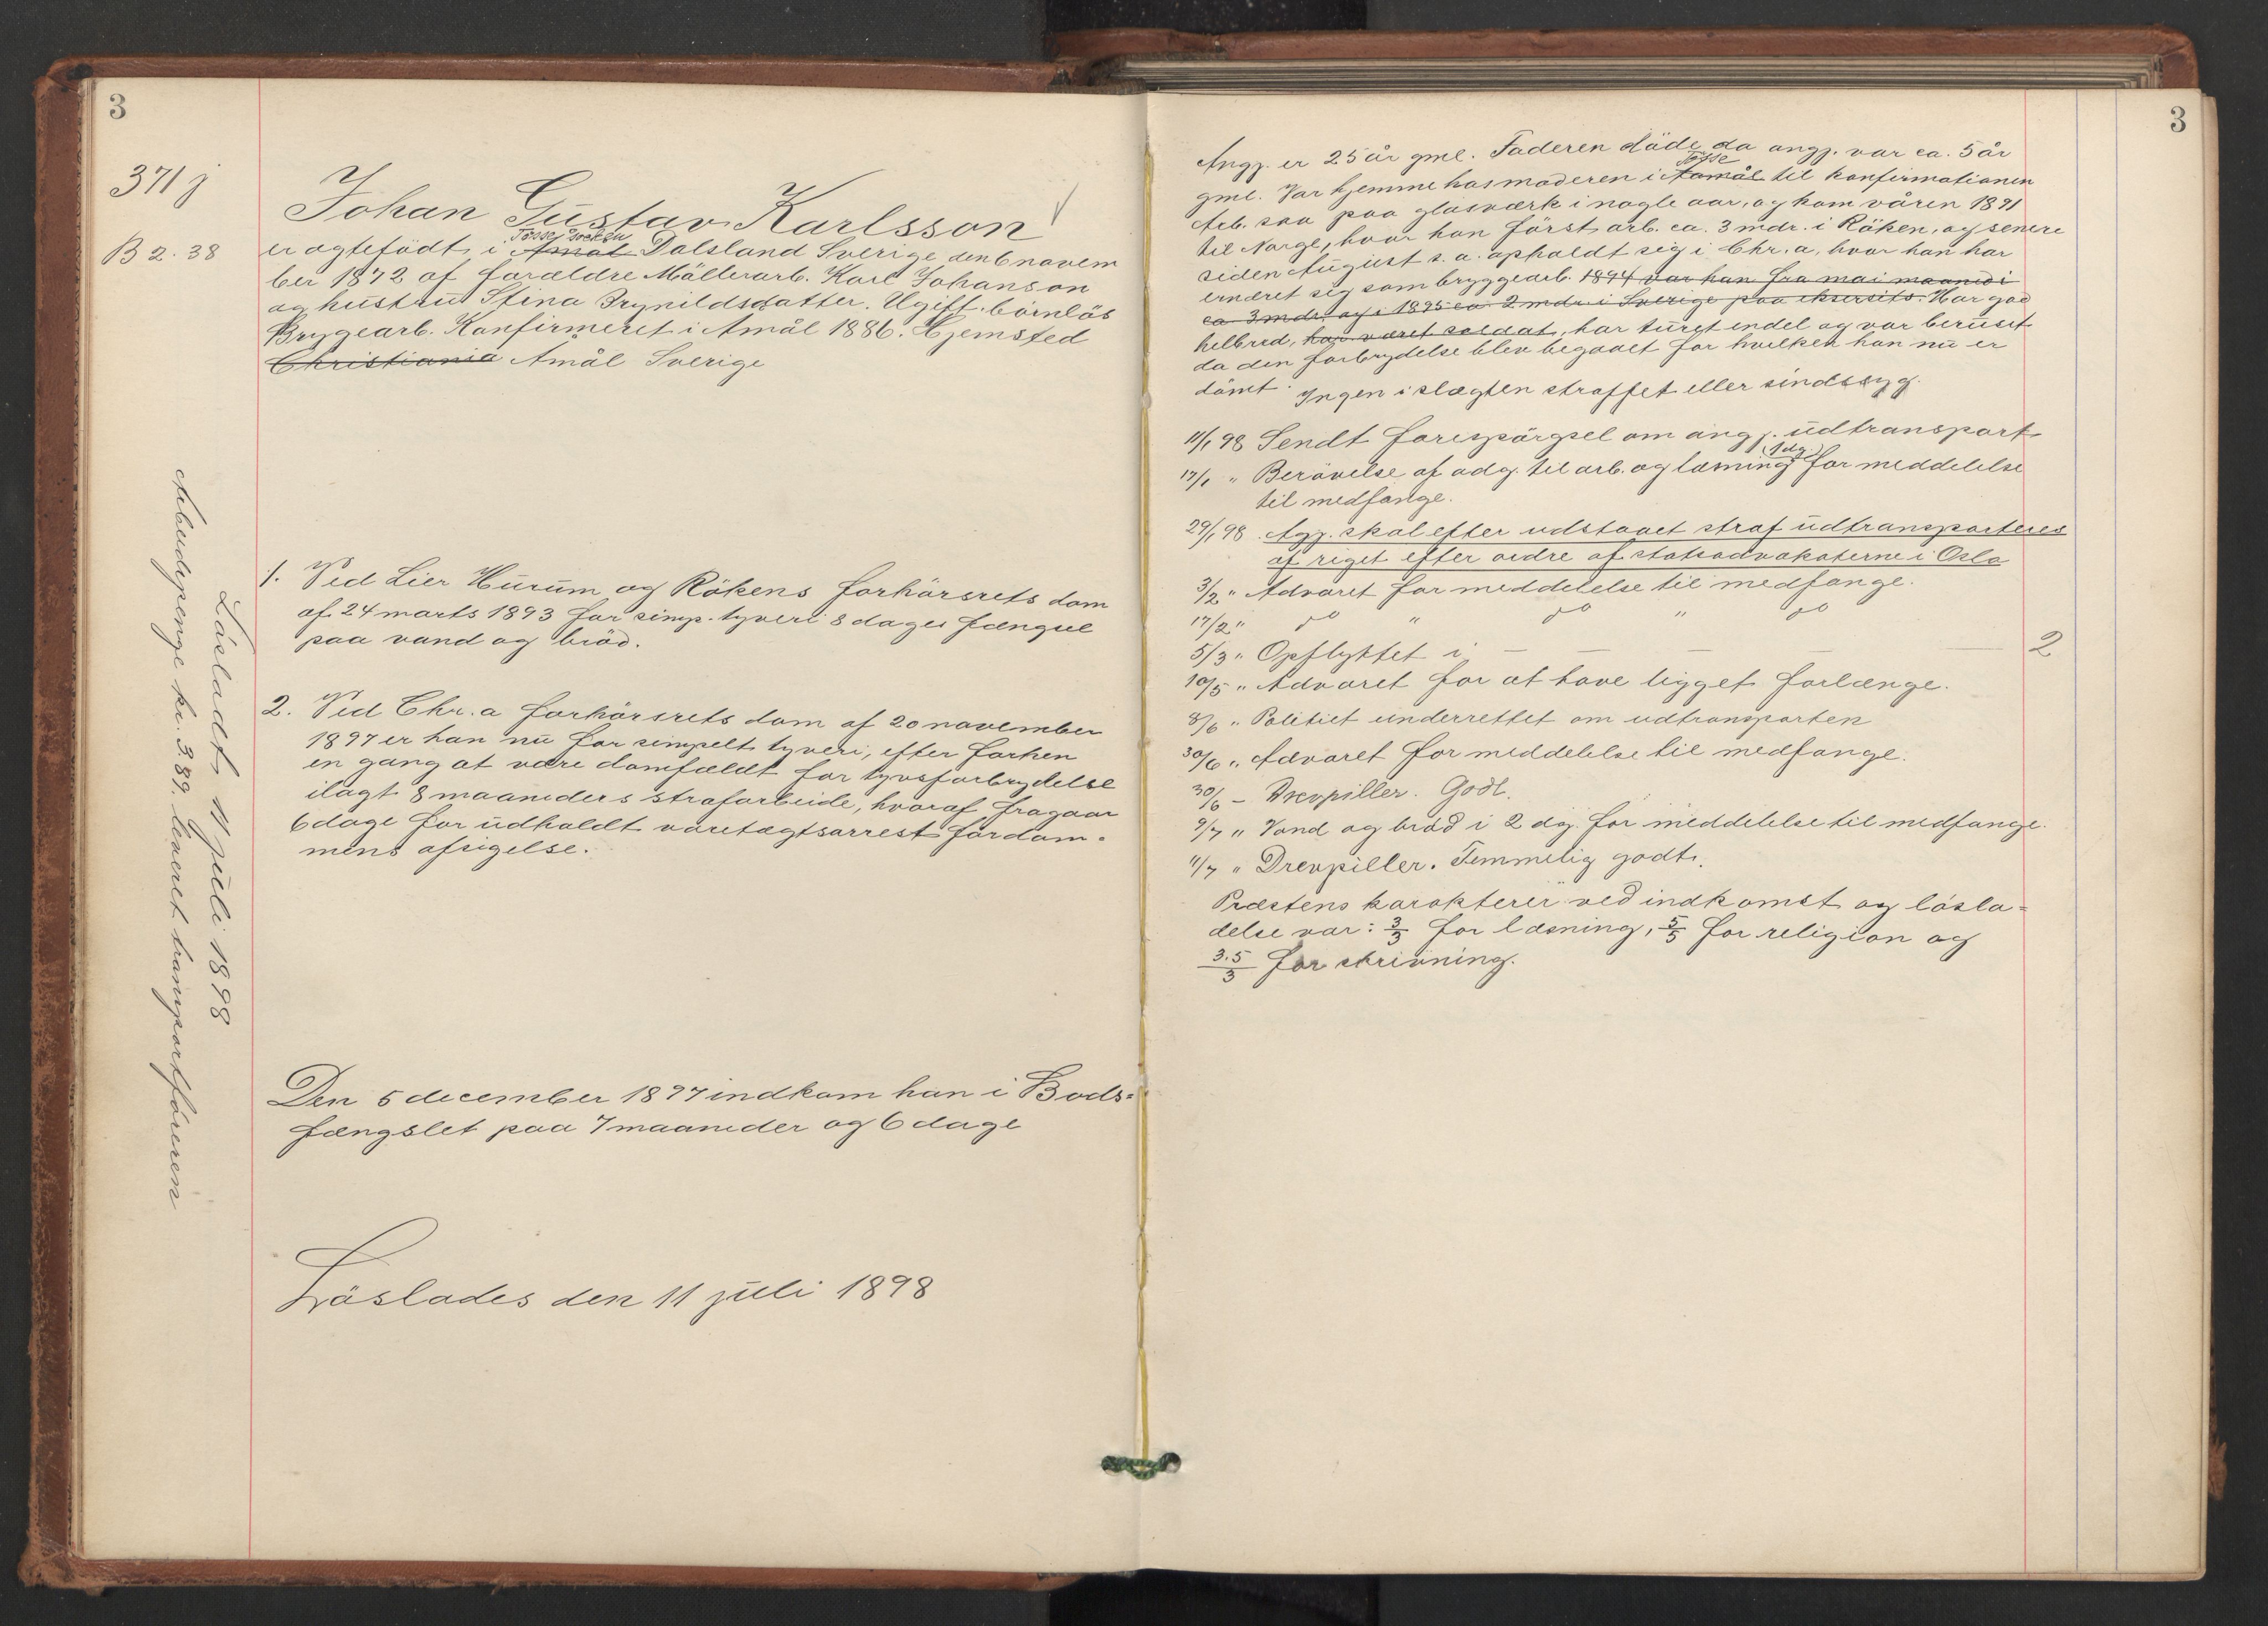 3
371 j
B 2. 38
Johan Gustav Karlsson
Tösse socken
er ægtefödt i Åmål Dalsland Sverige den 6 novem
ber 1872 af forældre Möllerarb. Karl Johanson
og hustru Stina Brynildsdatter. Ugift. börnlös
Bryggearb. Konfirmeret i Åmål 1886. Hjemsted
Christiania Åmål Sverige
1. Ved Lier Hurum og Rökens forhörsrets dom
af 24 marts 1893 for simp. tyveri 8 dages fængsel
paa vand og bröd.
2. Ved Chr.a forhörsrets dom af 20 november
1897 er han nu for simpelt tyveri, efter forhen
en gang at være domfældt for tyvsforbrydelse
ilagt 8 maaneders strafarbeide, hvoraf fragaar
6 dage for udholdt varetægtsarrest för dom-
mens afsigelse.
Den 5 december 1897 indkom han i Bods=
fængslet paa 7 maaneder og 6 dage
Löslades den 11 juli 1898
Lösladt 11 juli 1898
Arbeidspenge kr. 3.89. leveret transportföreren
3
Angj. er 25 år gml. Faderen döde da angj. var ca. 5 år
Tösse
gml. Var hjemme hos moderen i Aamål til konfirmationen
Arb. saa paa glasværk i nogle aar, og kom våren 1891
til Norge, hvor han först arb. ca. 3 mdr. i Röken, og senere
siden August s. a. opholdt sig i Chr.a, hvor han har
ernæret sig som bryggearb. 1894 var han fra mai maaned i
ca 3 mdr. og i 1895 ca. 2 mdr. i Sverige paa eksersits. Har god
helbred, har været soldat, har turet endel og var beruset
da den forbrydelse blev begaaet for hvilken han nu er
dömt. Ingen i slægten straffet eller sindssyg.
11/1 98 Sendt forespörgsel om angj. udtransport
(1 dg)
17/1 " Berövelse af adg. til arb. og læsning for meddelelse
til medfange.
29/1 98. Agj. skal efter udstaaet straf udtransporteres
af riget efter ordre af statsadvokaterne i Oslo
3/2 " Advaret for meddelelse til medfange.
17/2 " do " do " do
5/3 " Opflyttet i — — — — — 2
10/5 " Advaret for at have ligget forlænge.
8/6 " Politiet underrettet om udtransporten
30/6 " Advaret for meddelelse til medfange.
30/6 – Drevpiller. Godt.
9/7 " Vand og bröd i 2 dg. for meddelelse til medfange.
11/7 " Drevpiller. Temmelig godt.
Præstens karakterer ved indkomst og lösla=
delse var: 3/3 for læsning, 5/5 for religion og
3.5/3 for skrivning.